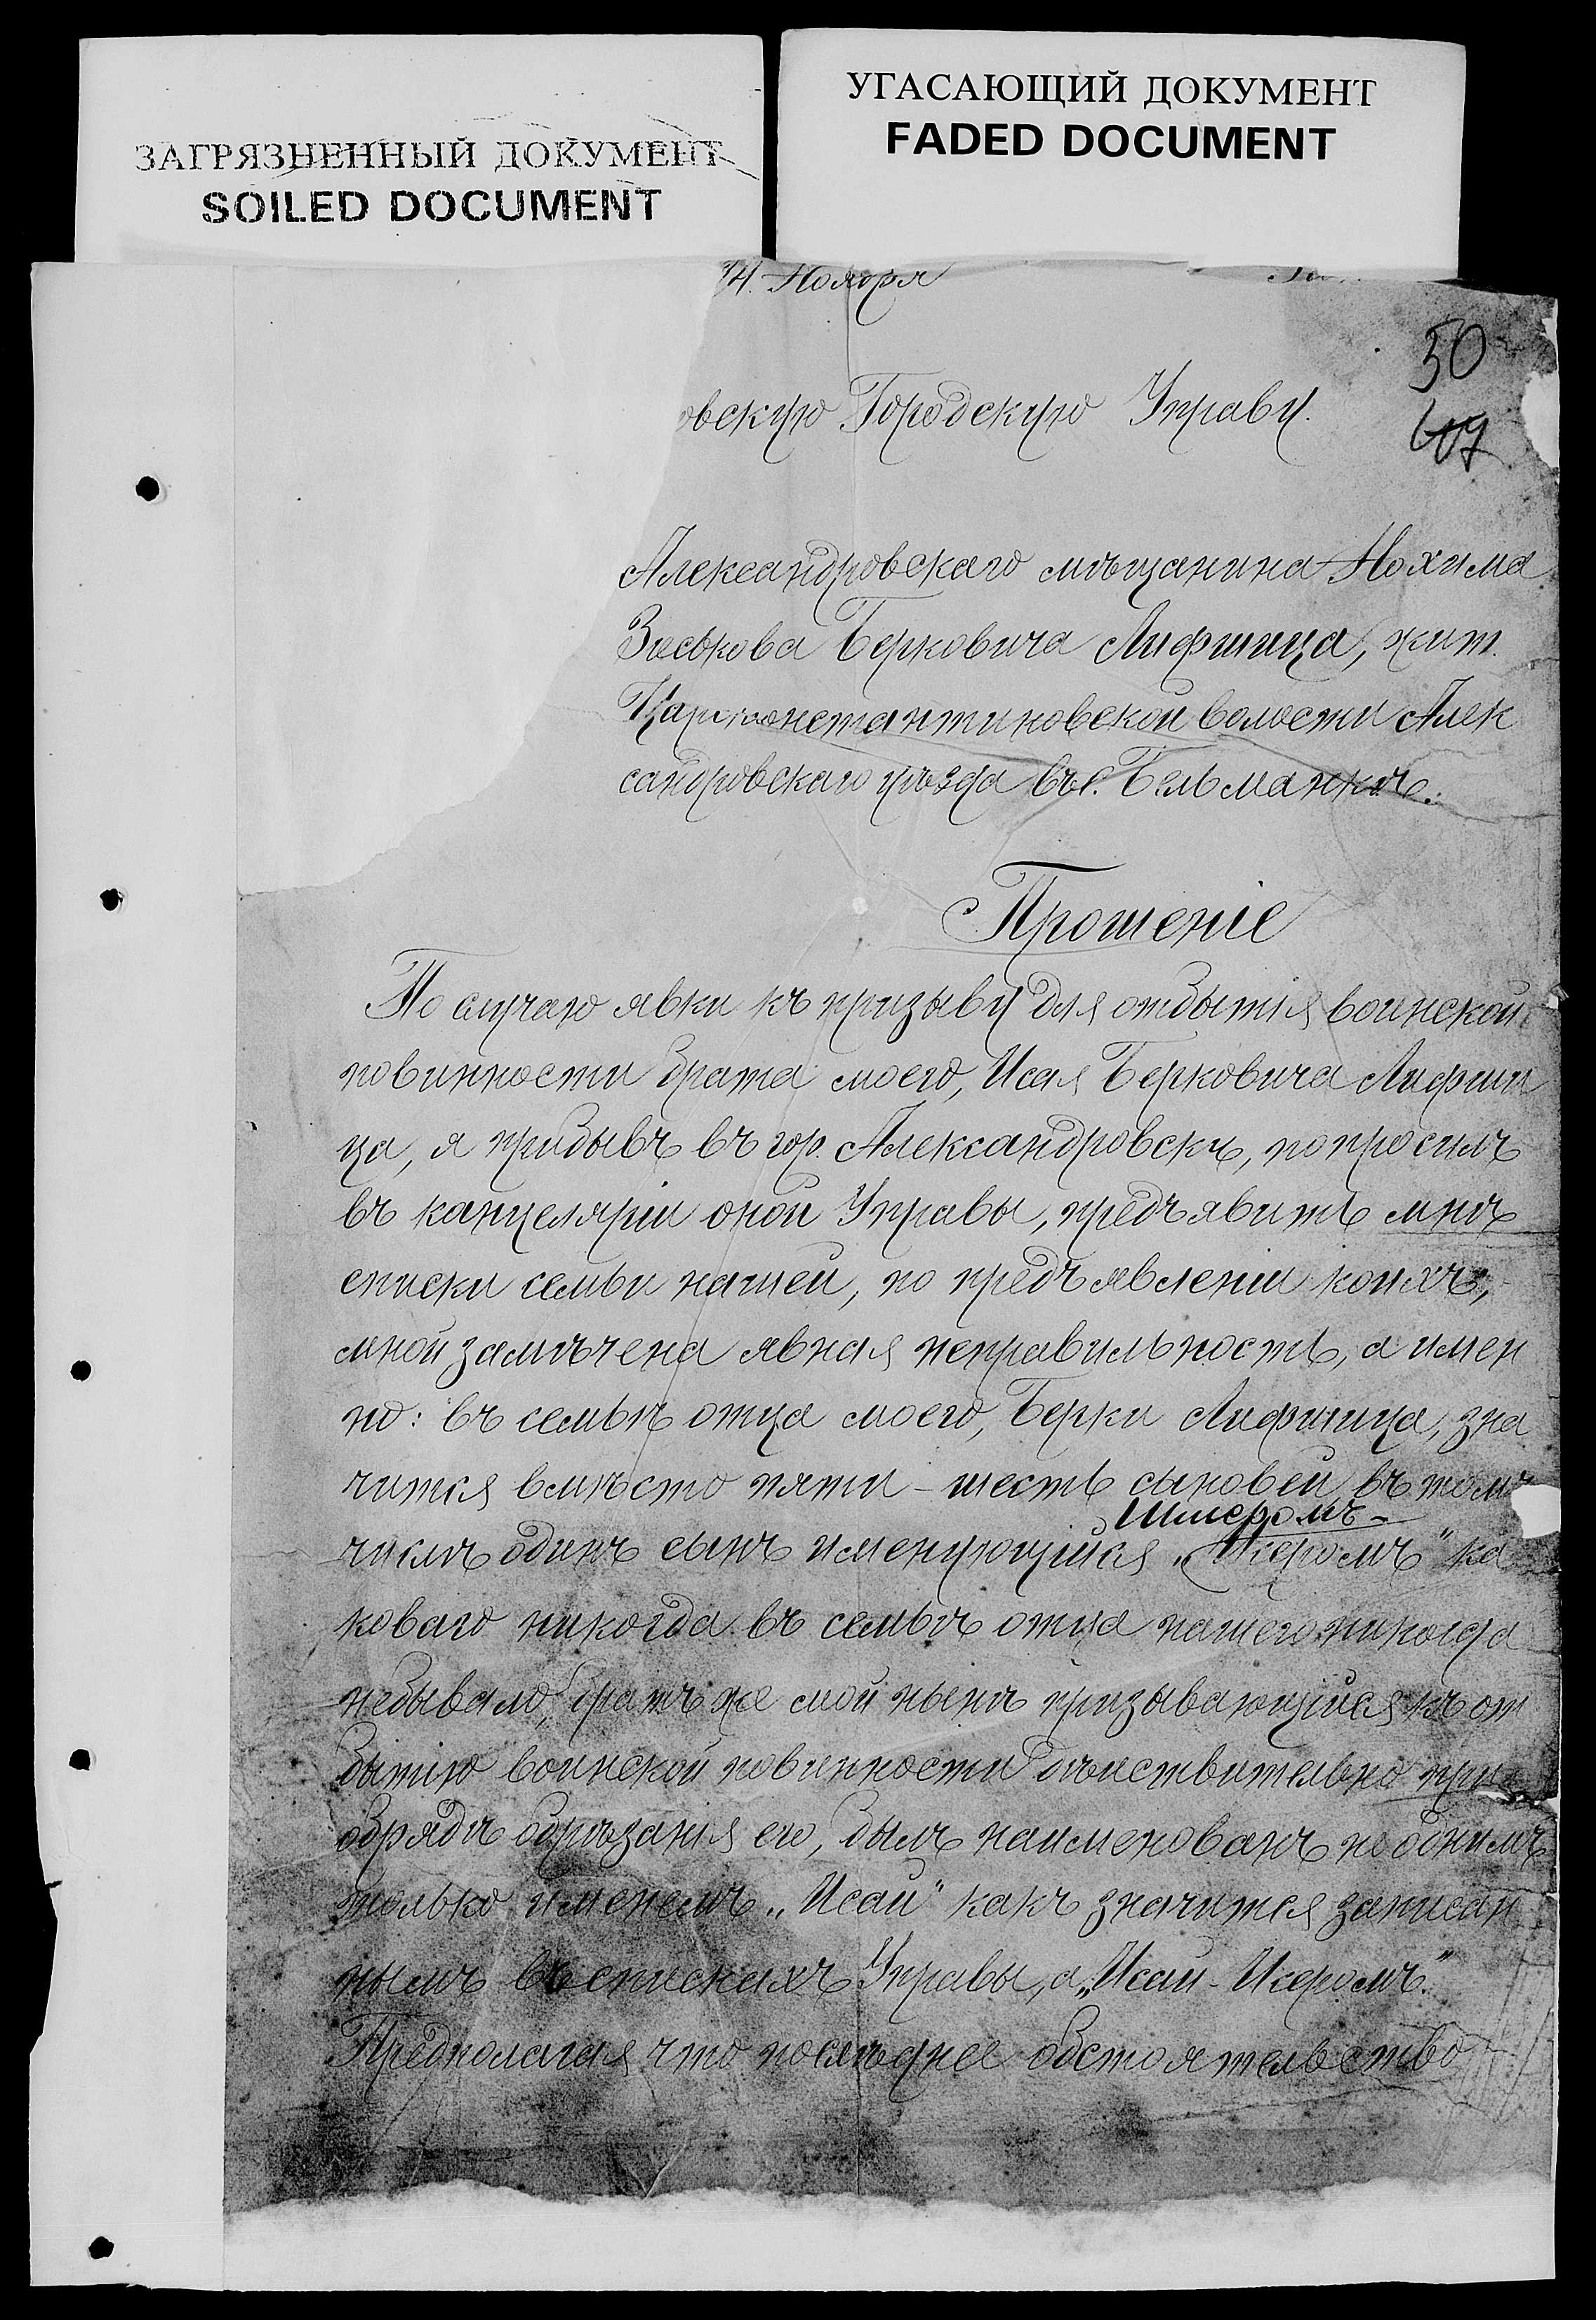 ЗАГРЯЗНЕННЫЙ ДОКУМЕНТ
SOILED DOCUMENT
УГАСАЮЩИЙ ДОКУМЕНТ
FADED DOCUMENT
14. Ноября
50
овскую Городскую Управу.
Александровскаго мѣщанина Нохима
Зуськова Берковича Лифшица, жит.
Цареконстантиновской волости Алек
сандровскаго уѣзда въ с. Бельманкѣ.
Прошеніе
По случаю явки къ призыву для отбытія воинской
повинности брата моего, Исая Берковича Лифши
ца, я прибывъ въ гор. Александровскъ, попросилъ
въ канцеляріи оной Управы, предъявить мнѣ
списки семьи нашей, по предъявленіи коихъ,
мной замѣчена явная неправильность, а имен
но: въ семьѣ отца моего, Берки Лифшица, зна
чится вмѣсто пяти - шесть сыновей, въ томъ
Шмеромъ -
числѣ одинъ сынъ именующійся „Икеромъ" ка
коваго никогда въ семьѣ отца нашего никогда
небывало, братъ же мой нынѣ призывающійся къ от
бытію воинской повинности дѣйствительно при
обрядѣ обрѣзанія его, былъ наименованъ не однимъ
только именемъ „Исай" какъ значится записан
нымъ въ спискахъ Управы, а „Исай - Икеромъ."
Предполагая что послѣднее обстоятельство